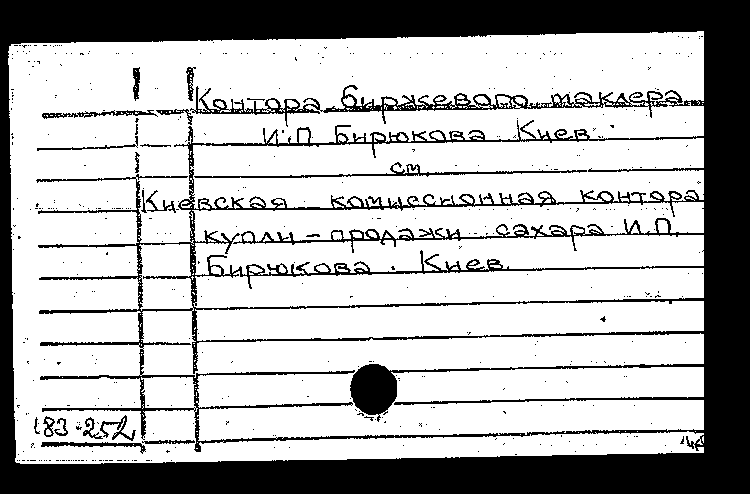 Контора биржевого маклера
И.П. Бирюкова Киев.
см.
Киевская комиссионная контора
купли-продажи сахара И.П.
Бирюкова. Киев.
183-252